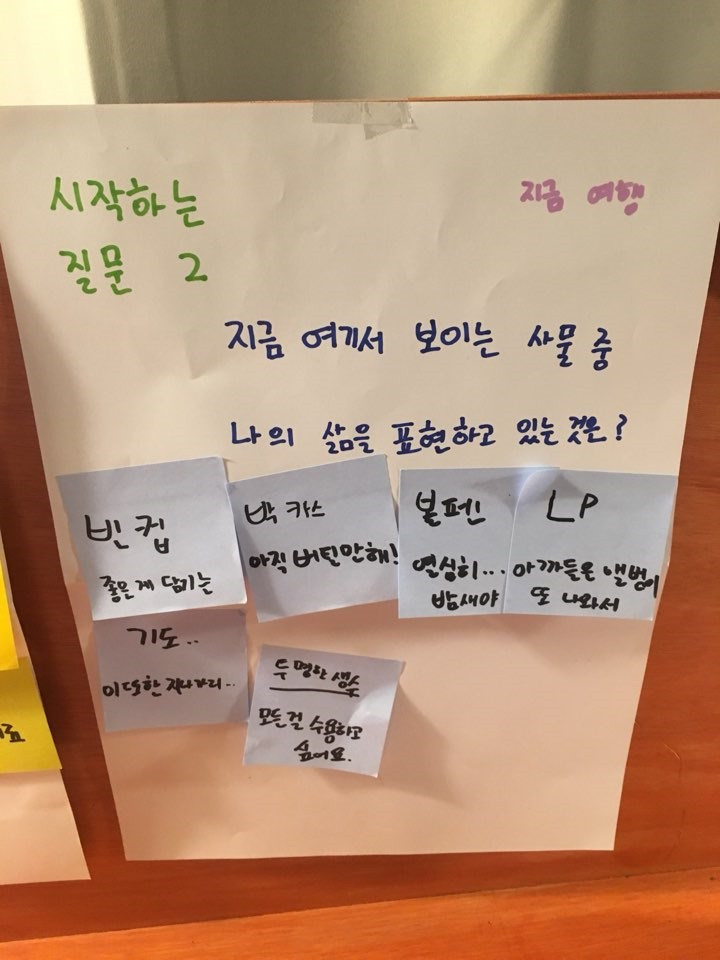 시작하는
질문 2
지금 여행
지금 여기서 보이는 사물 중
나의 삶을 표현하고 있는 것은?
빈 컵
좋은 게 담기는
박카스
아직 버틸만해!
볼펜
열심히...
밤새야
LP
아까 들은 앨범이
또 나와서
기도..
이 또한 지나가리..
투명한 생수
모든 걸 수용하고
싶어요.
료